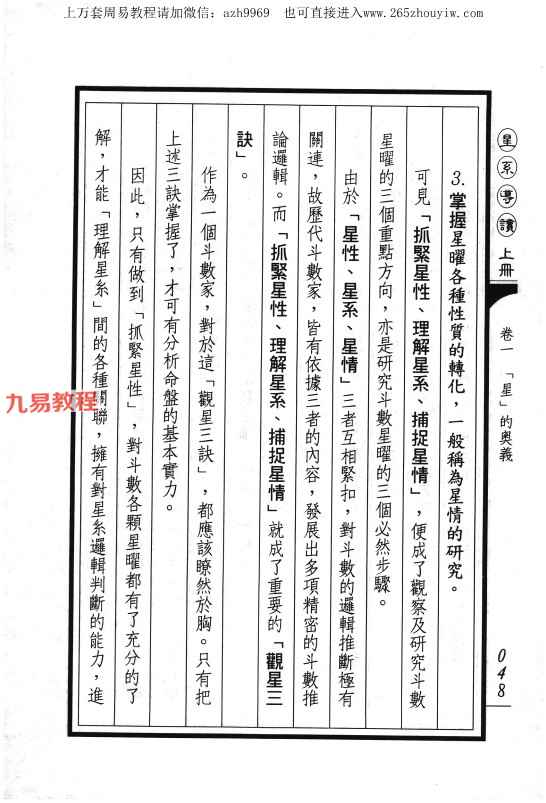 上万套周易教程请加微信：azh9969 也可直接进入www.265zhouyiw.com
星系導讀 上冊
卷一 「星」的奧義
048
3.掌握星曜各種性質的轉化，一般稱為星情的研究。
可見「抓緊星性、理解星系、捕捉星情」，便成了觀察及研究斗數
星曜的三個重點方向，亦是研究斗數星曜的三個必然步驟。
由於「星性、星系、星情」三者互相緊扣，對斗數的邏輯推斷極有
關連，故歷代斗數家，皆有依據三者的內容，發展出多項精密的斗數推
論邏輯。而「抓緊星性、理解星系、捕捉星情」就成了重要的「觀星三
訣」。
作為一個斗數家，對於這「觀星三訣」，都應該瞭然於胸。只有把
上述三訣掌握了，才可有分析命盤的基本實力。
因此，只有做到「抓緊星性」，對斗數各顆星曜都有了充分的了
解，才能「理解星系」間的各種關聯，擁有對星系邏輯判斷的能力，進
九易教程